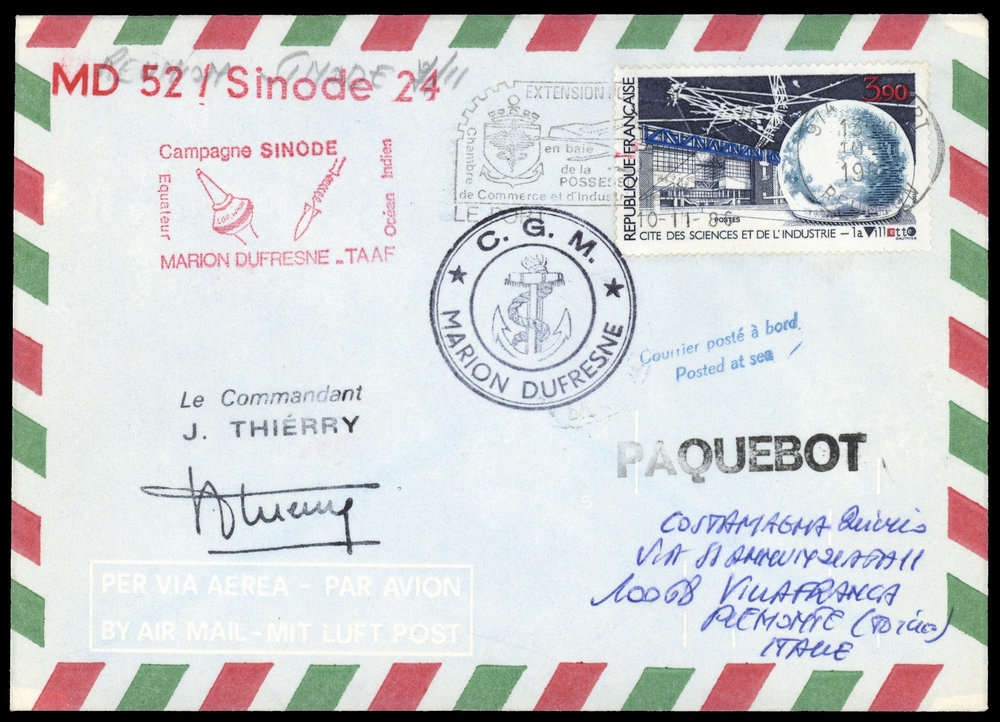 MD 52 / Sinode 24
Campagne SINODE
Equateur
Océan Indien
MARION DUFRESNE - TAAF
EXTENSION
en baie
de la
POSSESS
Chambre
de Commerce et d'Indust
LE
10-11-8
3,90
REPUBLIQUE FRANÇAISE
POSTES
CITE DES SCIENCES ET DE L'INDUSTRIE – la Villette
C. G. M.
MARION DUFRESNE
Courrier posté à bord
Posted at sea
Le Commandant
J. THIÉRRY
PAQUEBOT
COSTAMAGNA
VIA
10068 VILLAFRANCA
PIEMONTE (TORINO)
ITALIE
PER VIA AEREA - PAR AVION
BY AIR MAIL - MIT LUFT POST